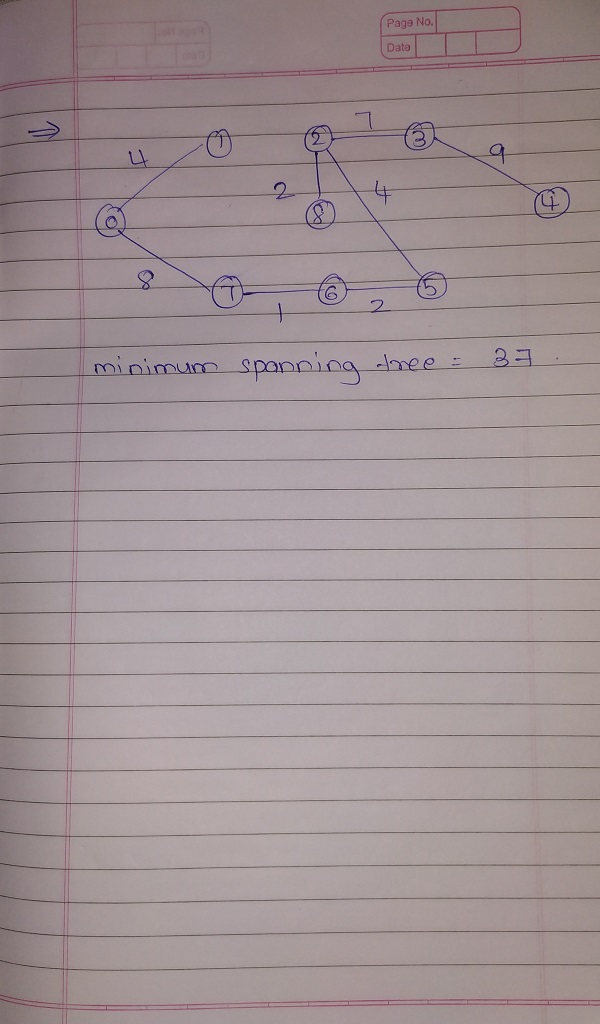 Page No.
Date
⇒ 1 2 7 3
4 9
2 8 4 4
0
8 7 6 5
1 2
minimum spanning tree = 37.